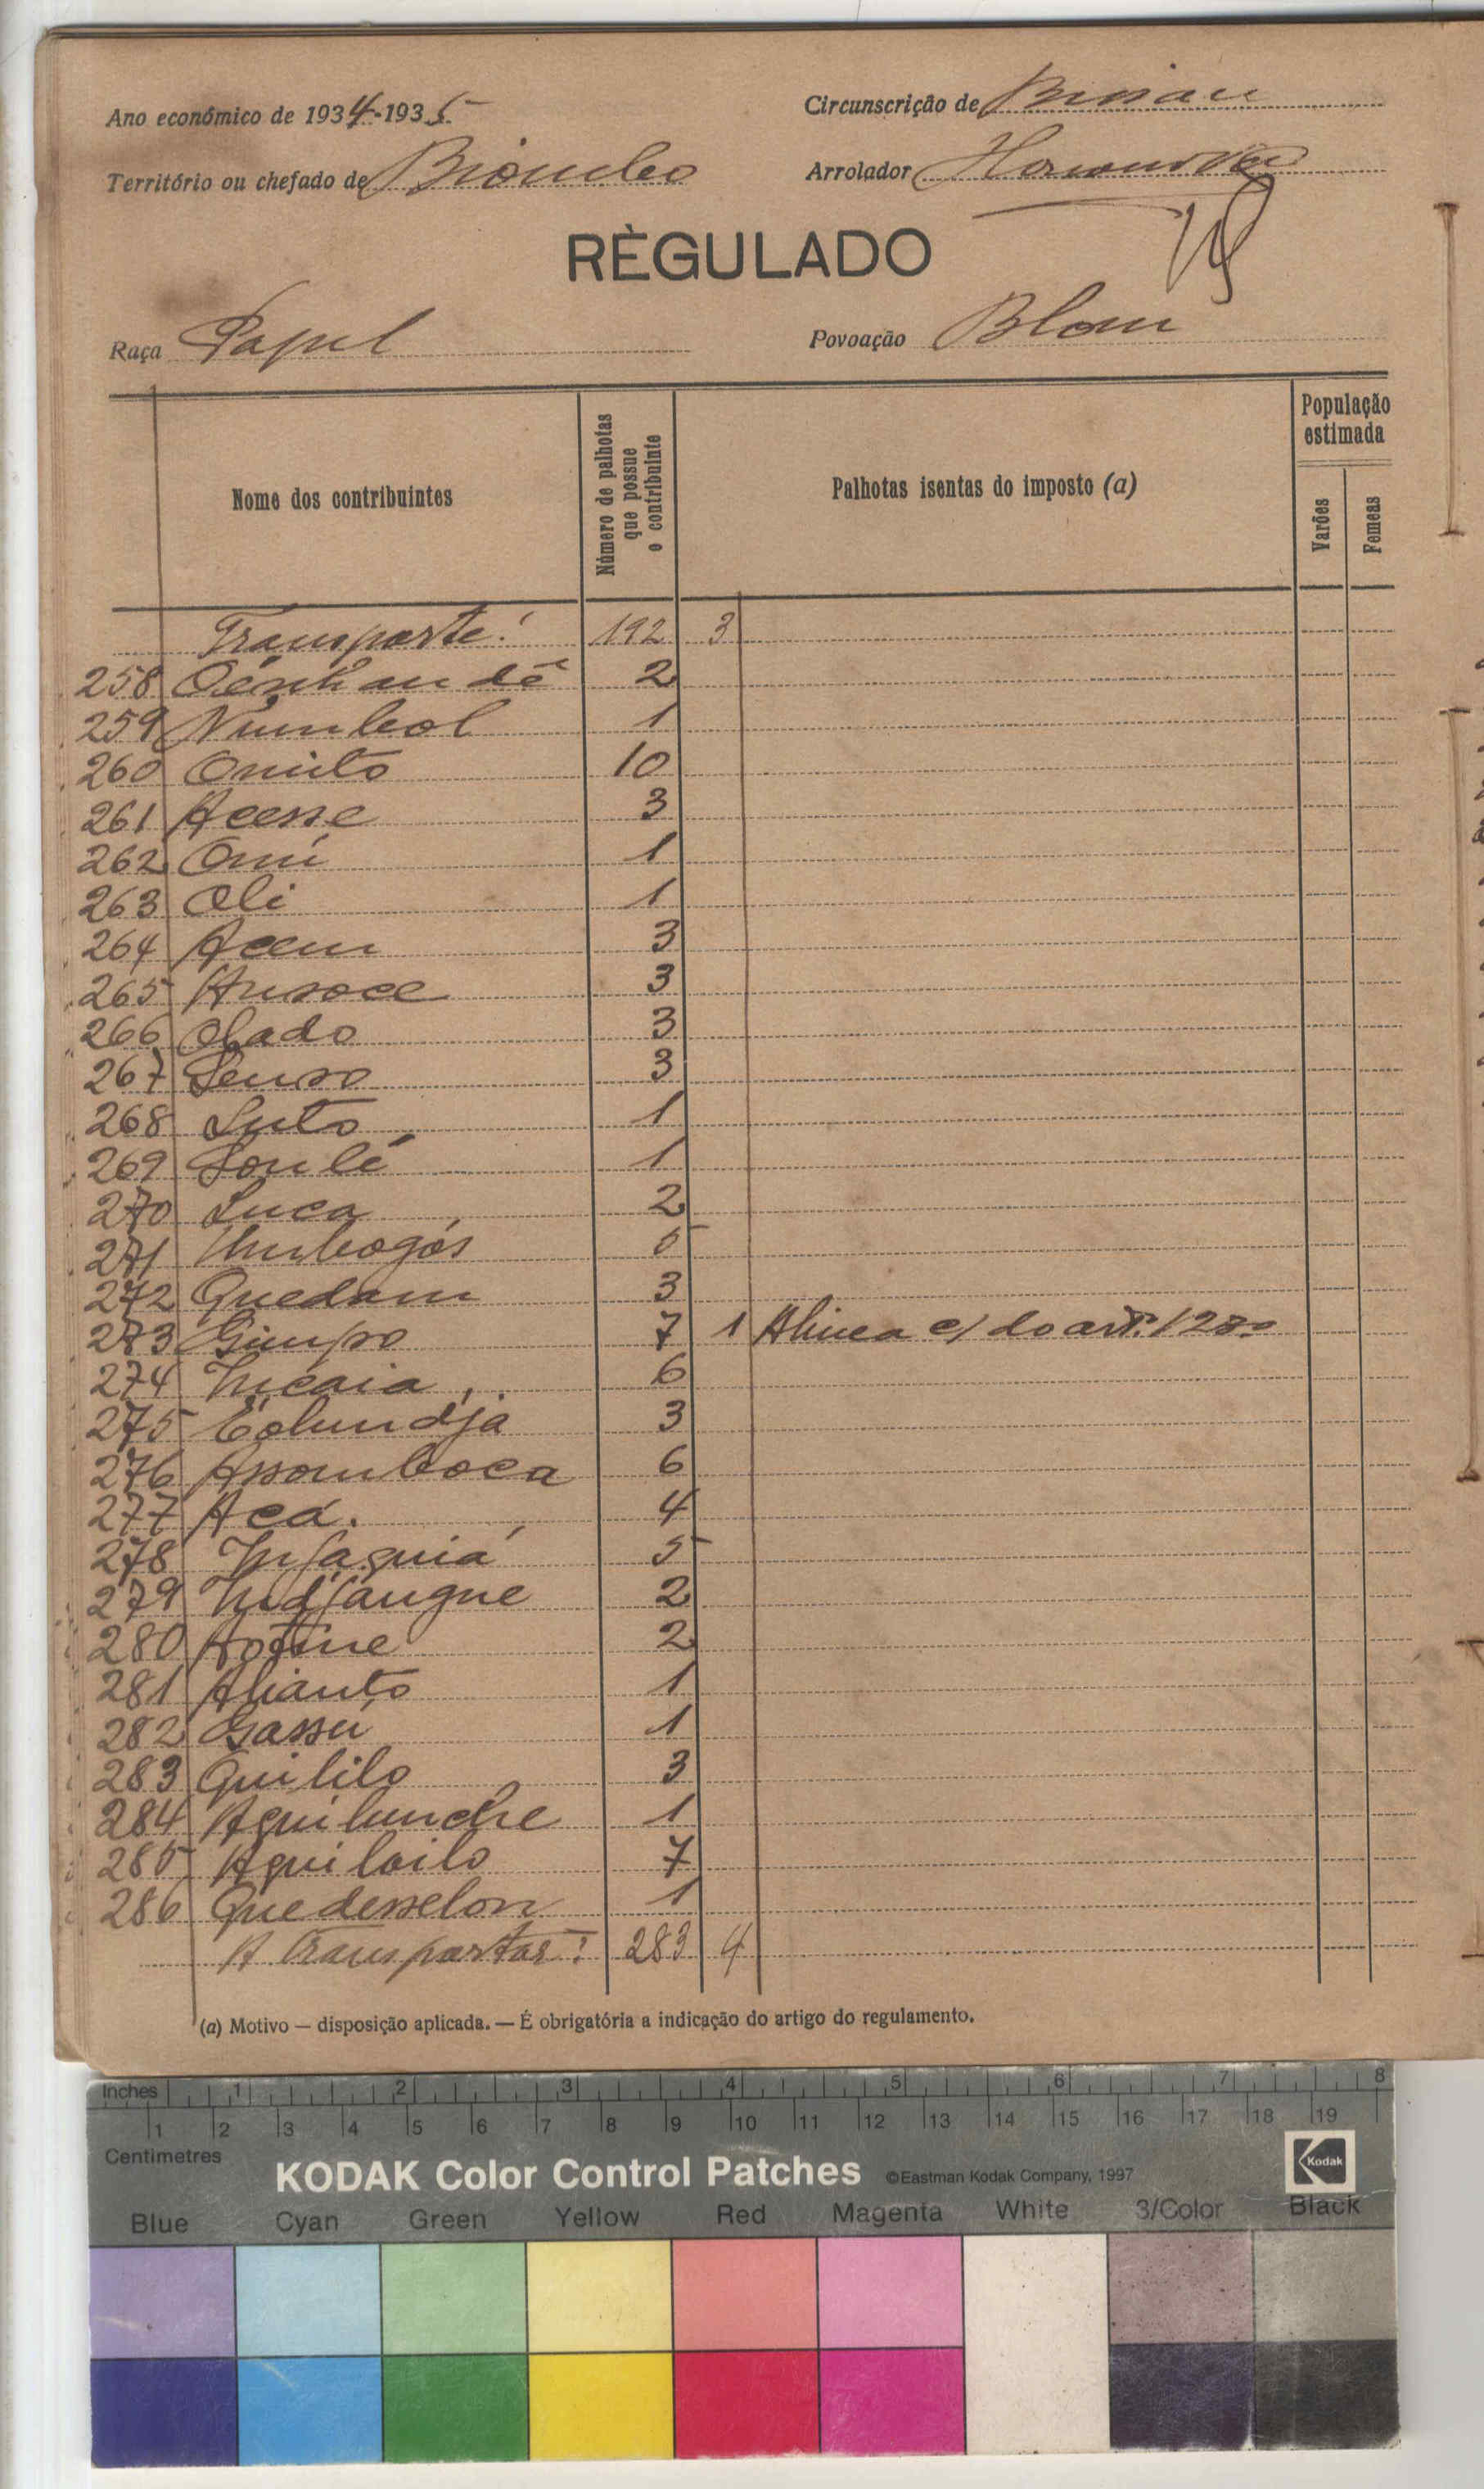 Ano económico de 1934-1935
Circunscrição de Bissau
Território ou chefado de Biombo
Arrolador
RÈGULADO
Raça Papel
Povoação Blom
Nome dos contribuintes
Número de palhotas que possue o contribuinte
Palhotas isentas do imposto (a)
População estimada
Varões
Femeas
Transporte: 192 3
258 2
259 Numbol 1
260 Onuto 10
261 Acesse 3
262 Omi 1
263 Oli 1
264 3
265 3
266 Olado 3
267 3
268 Luto 1
269 1
270 Luca 2
271 5
272 Quedam 3
273 Gimpo 7 1 Alinea c/ do artº. 128º
274 Incaia 6
275 3
276 Assomboca 6
277 Acá. 4
278 5
279 Indjangue 2
280 2
281 Alianto 1
282 Gassú 1
283 Quililo 3
284 Aquilunche 1
285 Aquiloilo 7
286 Quedesselon 1
A Transportar: 283 4
(a) Motivo — disposição aplicada. — É obrigatória a indicação do artigo do regulamento.
Inches 1 2 3 4 5 6 7 8
1 2 3 4 5 6 7 8 9 10 11 12 13 14 15 16 17 18 19
Centimetres
KODAK Color Control Patches ©Eastman Kodak Company, 1997 Kodak
Blue Cyan Green Yellow Red Magenta White 3/Color Black